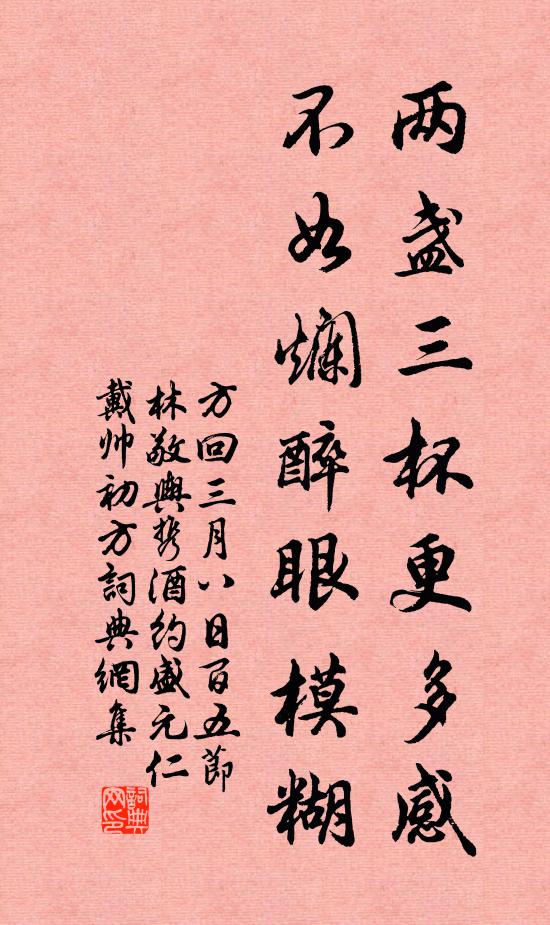 两盏三杯更多感
不如爛醉眼模糊
方回三月八日百五節
林敬與携酒約盛元仁
戴帅初方詞典網集
詞典网印